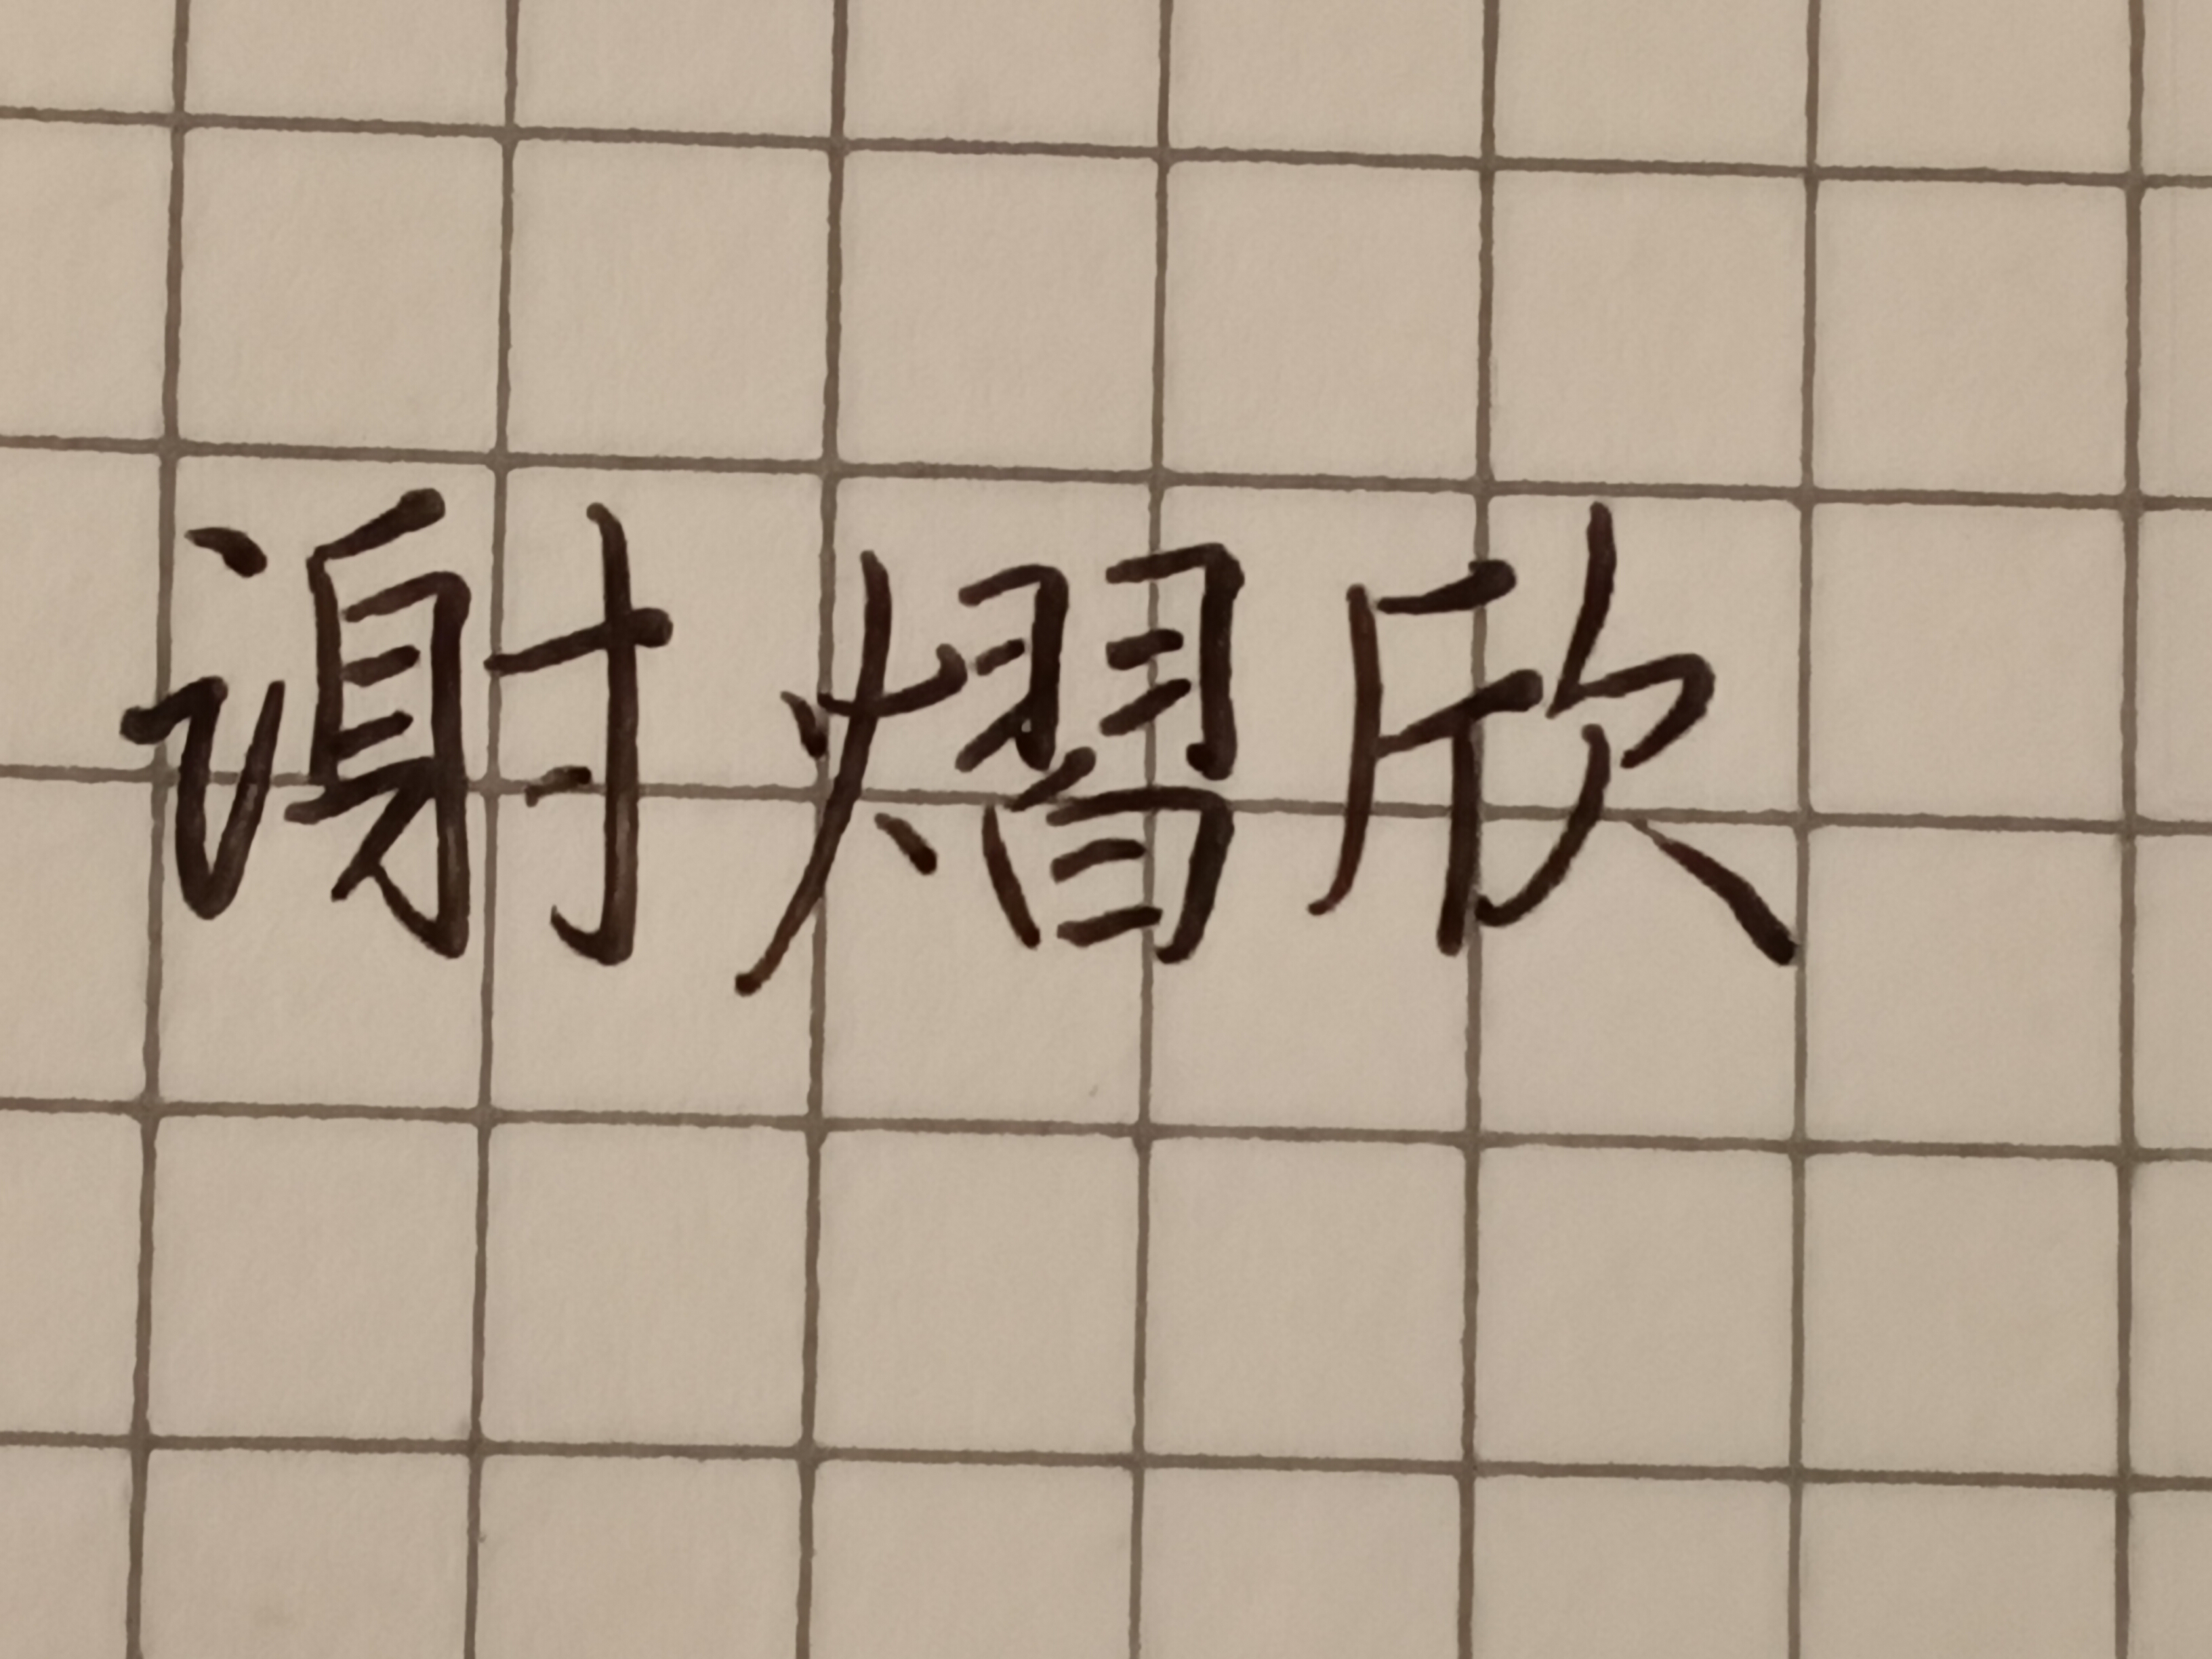 谢熠欣